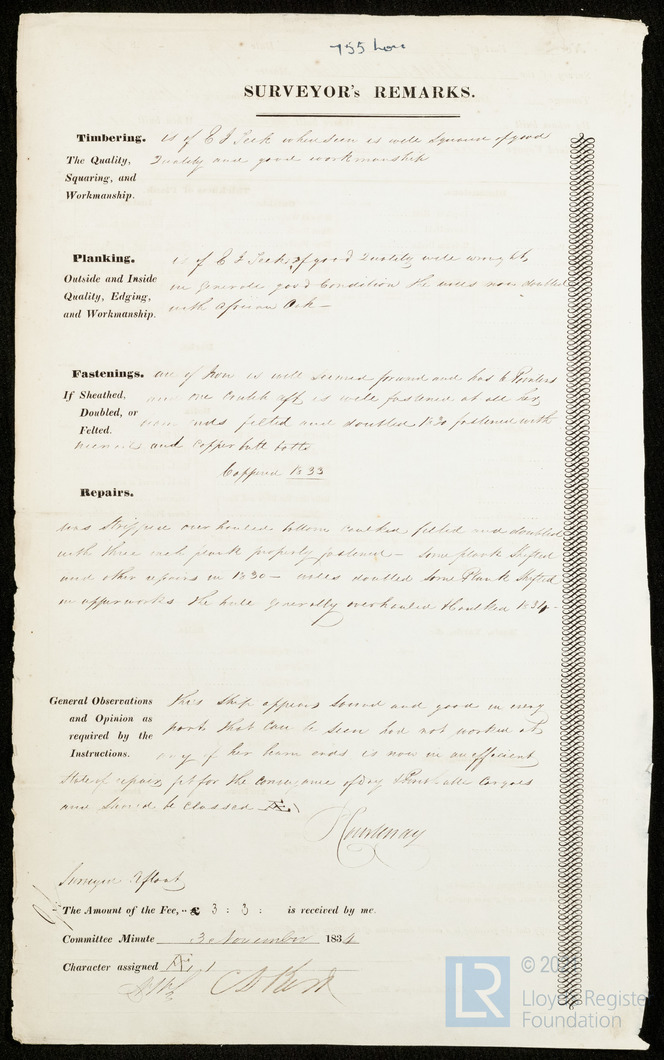 755 Lon
SURVEYOR's REMARKS.
Timbering. is of E I Teek where seen is well squared of good
The Quality, Quality and good workmanship
Squaring, and
Workmanship.
Planking. is of E I Teek, of good Quality well wrought,
Outside and Inside in generale good Condition the wales now doubled
Quality, Edging, with African Oak -
and Workmanship.
Fastenings. are of Iron is well secured forward and has 6 Pointers
If Sheathed, and one Crutch aft is well fastened at all her
Doubled, or beam ends felted and doubled 1830 fastened with
Felted.
and Copper butt bolts
Coppered 1833
Repairs.
Was Stripped overhauled bottom caulked felted and doubled
with three inch plank properly fastened - Some plank Shifted
and other repairs in 1830 - wales doubled Some Plank Shifted
in upperworks the hull generally overhauled & Caulked 1834 -
General Observations This Ship appears Sound and good in every
and Opinion as part that can be seen had not worked at
required by the any of her beam ends is now in an efficient
Instructions. State of repair, fit for the conveyance of Dry & Perishable Cargoes
and Should be Classed Æ 1
Courtenay
Surveyed Afloat
The Amount of the Fee, £ 3 : 3 : is received by me.
Committee Minute 3 November 1834
Character assigned Æ 1
© 20
LR
Lloyd's Register
Foundation